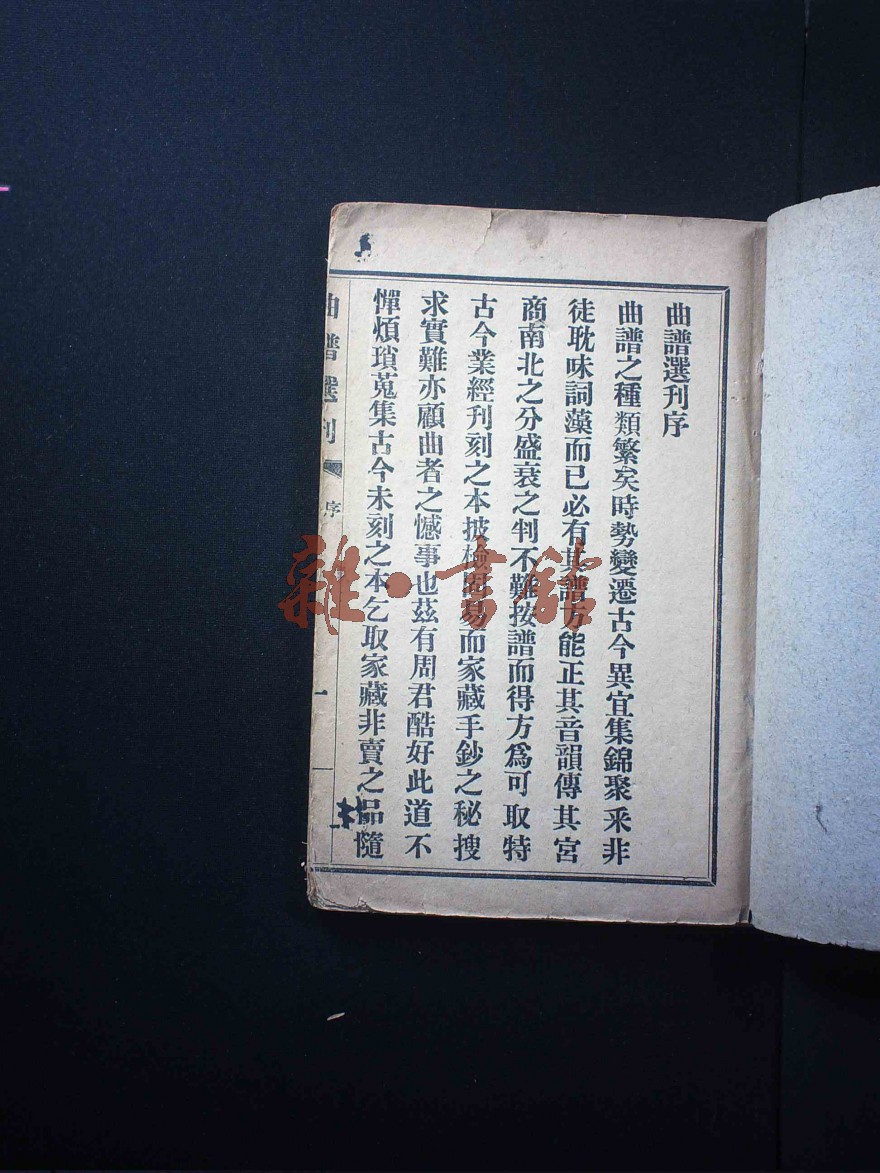 曲譜選刊序
曲譜之種類繁矣時勢變遷古今異宜集錦聚采非
徒耽味詞藻而已必有其譜方能正其音韻傳其宮
商南北之分盛衰之判不難按譜而得方爲可取特
古今業經刊刻之本披檢固易而家藏手鈔之秘搜
求實難亦顧曲者之憾事也茲有周君酷好此道不
憚煩瑣蒐集古今未刻之本乞取家藏非賣之品隨
曲譜選刊 序 一
雜·書館